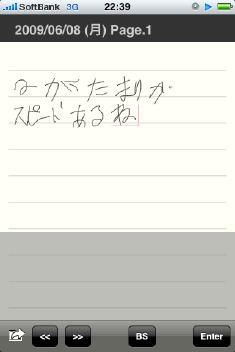 SoftBank 3G 22:39
2009/06/08 (月) Page.1
スピードあるね
<< >> BS Enter